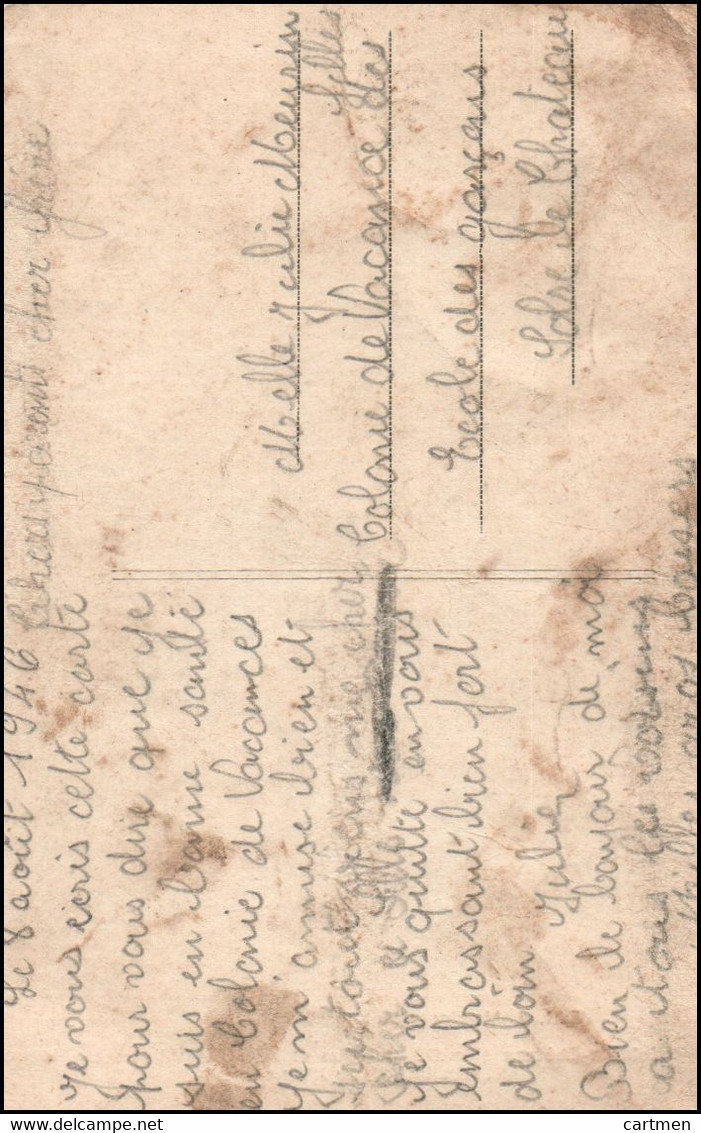 Le 8 août 1946 chers parents cher frère
Je vous écris cette carte
pour vous dire que je
suis en bonne santé
en Colonie de Vacances
Je m'amuse bien et
Je vous quitte en vous
embrassant bien fort
de loin
Bien le bonjour de moi
a tous les voisins
gros baisers
Melle Julie Meurin
Colonie de Vacance des filles
Ecole des garçons
Solre le Chateau
cartmen